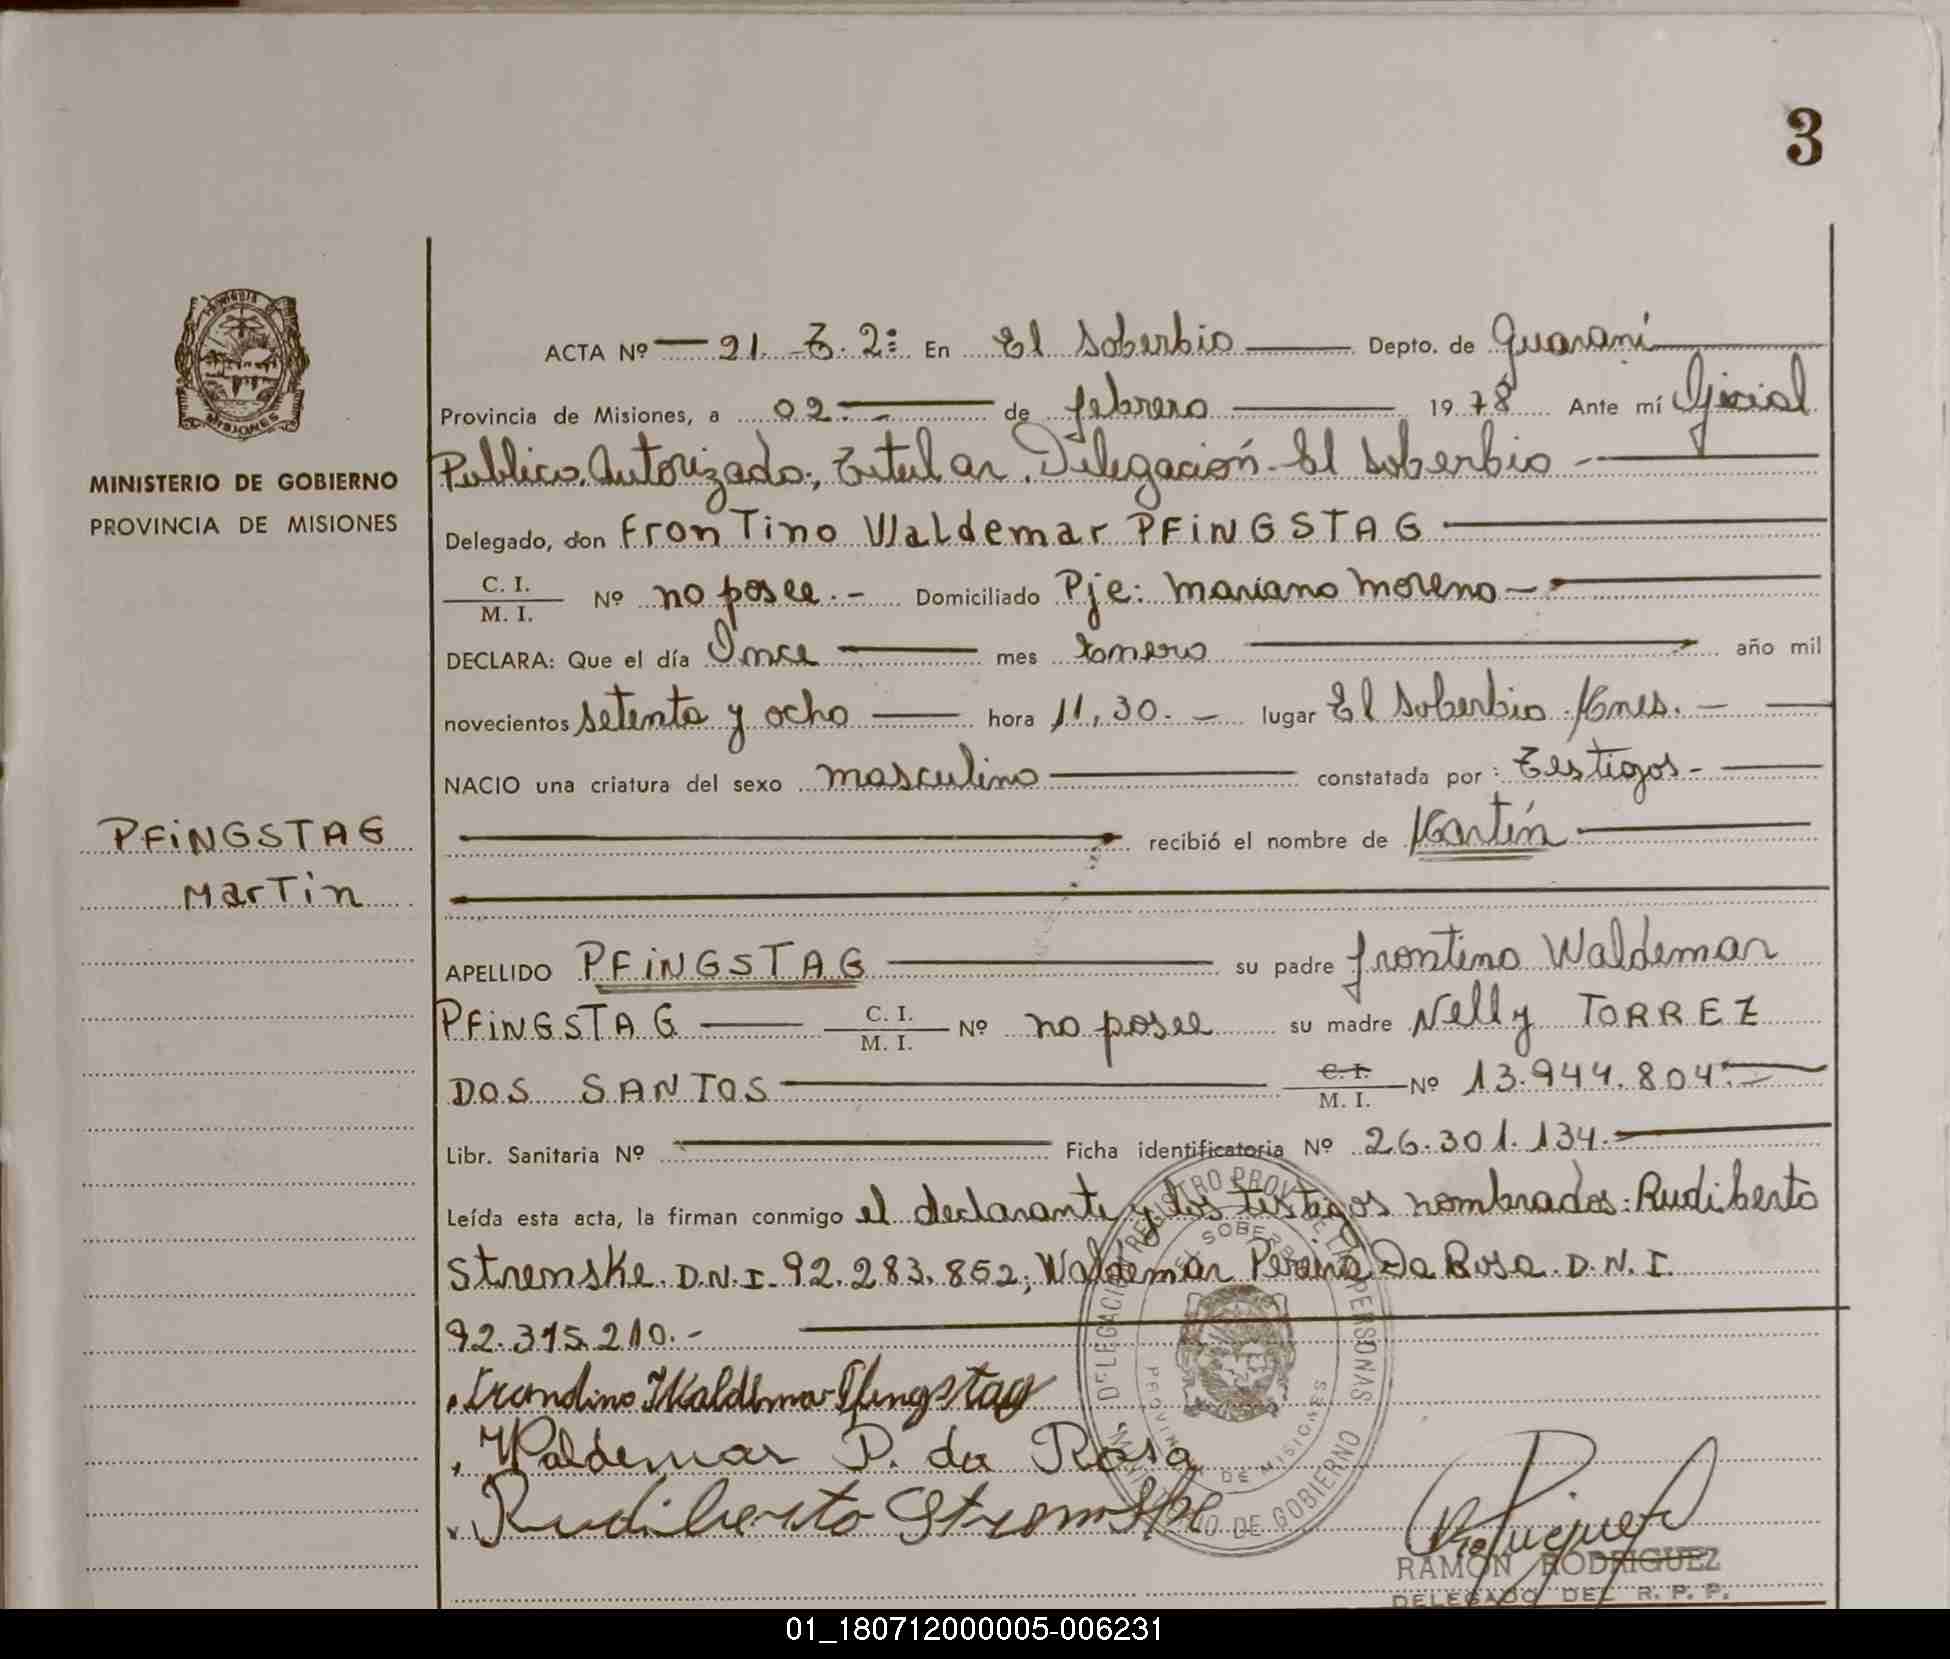 3
ACTA Nº — 21. T. 2: En El Soberbio — Depto. de Guaraní
Provincia de Misiones, a 02 — de febrero — 1978 Ante mí Oficial
Publico Autorizado, Titular Delegación El Soberbio —
MINISTERIO DE GOBIERNO
PROVINCIA DE MISIONES
Delegado, don FronTino Waldemar PFiNGSTAG
C. I.
M. I. Nº no posee.- Domiciliado Pje: Mariano Moreno —
DECLARA: Que el día Once — mes Enero — año mil
novecientos setenta y ocho — hora 11,30. — lugar El Soberbio Mnes. —
NACIO una criatura del sexo masculino — constatada por: Testigos -
PFiNGSTAG
MarTin
recibió el nombre de Martín
APELLIDO PFiNGSTAG — su padre Frontino Waldemar
PFiNGSTAG — C. I. M. I. Nº no posee su madre Nelly TORREZ
DOS SANTOS — C. I. M. I. Nº 13.944.804.-
Libr. Sanitaria Nº — Ficha identificatoria Nº 26.301.134.
Leída esta acta, la firman conmigo el declarante y los testigos nombrados: Rudiberto
Stremske D.N.I. 92.283.852; Waldemar Pereira Da Rosa. D.N.I.
92.315.210.-
Waldemar P. da Rosa
Rudiberto Stremske
DELEGACION REGISTRO PROV. DE LAS PERSONAS
EL SOBERBIO
PROVINCIA DE MISIONES
MINISTERIO DE GOBIERNO
RAMON RODRIGUEZ
DELEGADO DEL R. P. P.
01_180712000005-006231